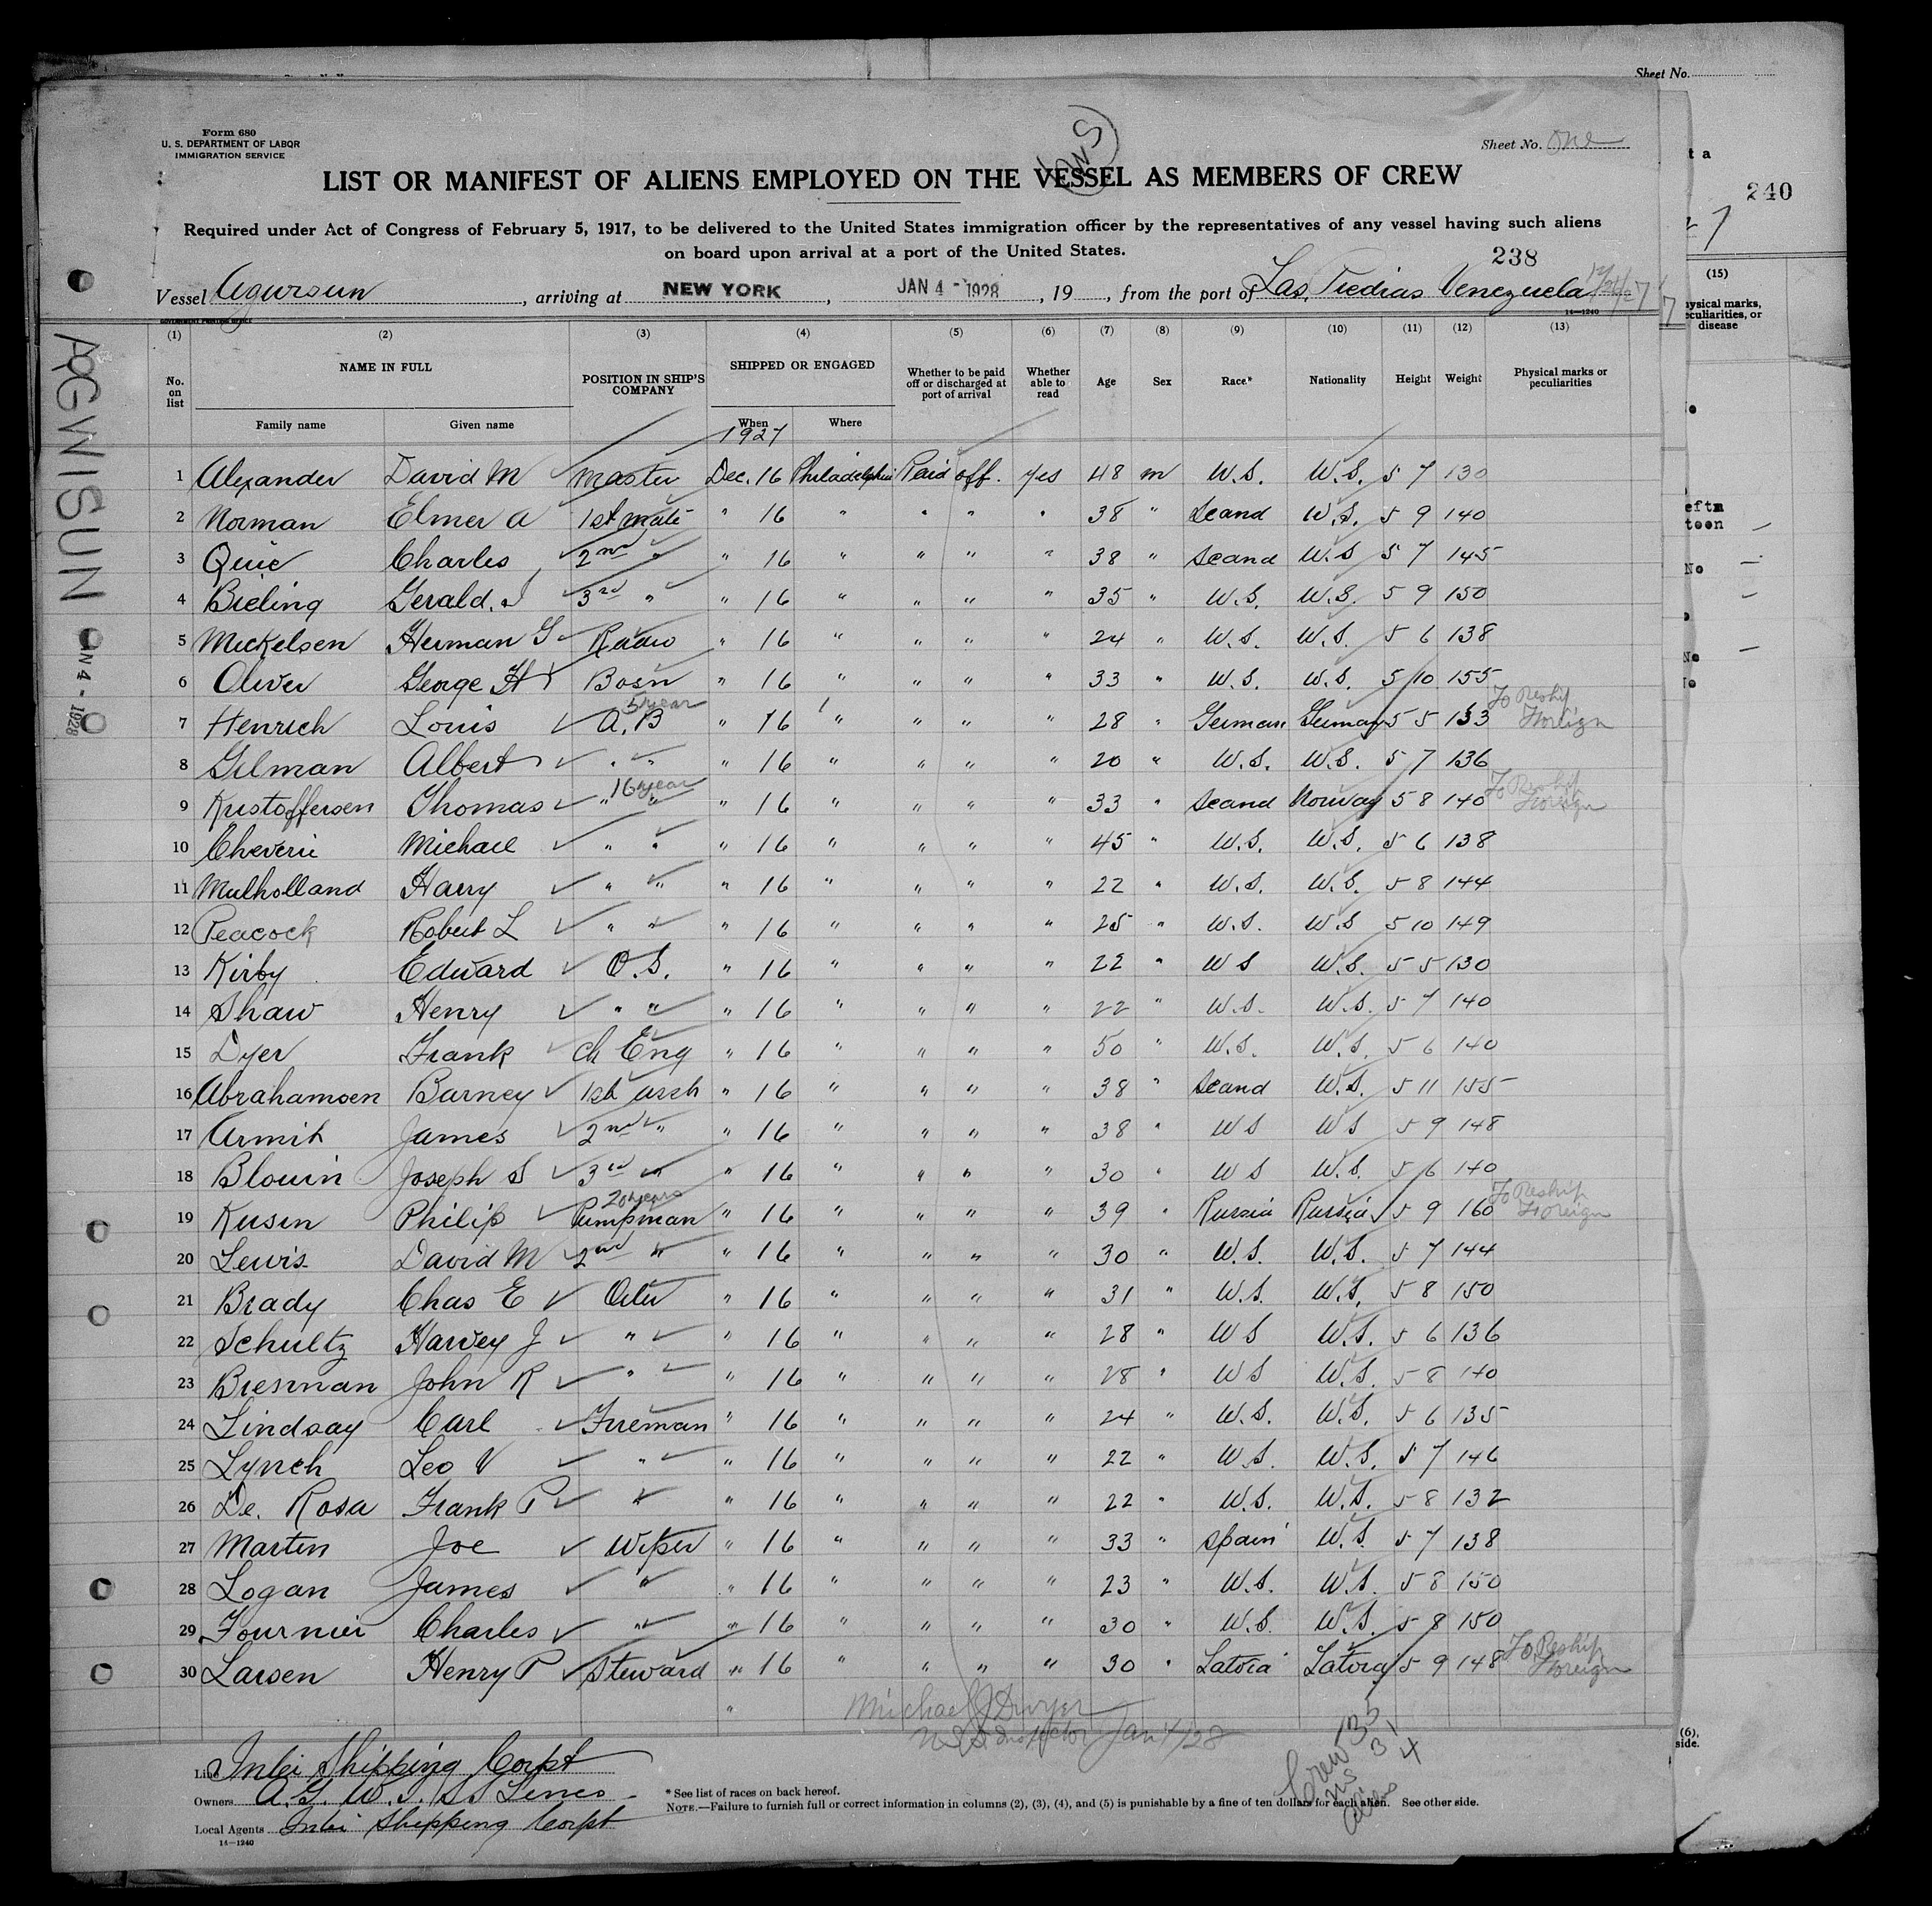 Sheet No.
Form 680
U. S. DEPARTMENT OF LABOR
IMMIGRATION SERVICE
Sheet No. One
LIST OR MANIFEST OF ALIENS EMPLOYED ON THE VESSEL AS MEMBERS OF CREW
Required under Act of Congress of February 5, 1917, to be delivered to the United States immigration officer by the representatives of any vessel having such aliens
on board upon arrival at a port of the United States.
238
240
Vessel Agwisun, arriving at NEW YORK, JAN 4 - 1928, 19, from the port of Las Piedras Venezuela
14—1240
AGWISUN
(1) (2) (3) (4) (5) (6) (7) (8) (9) (10) (11) (12) (13)
No. on list
NAME IN FULL
Family name Given name
POSITION IN SHIP'S COMPANY
SHIPPED OR ENGAGED
When Where
Whether to be paid off or discharged at port of arrival
Whether able to read
Age Sex Race* Nationality Height Weight
Physical marks or peculiarities
1927
1 Alexander David M Master Dec. 16 Philadelphia Paid off. yes 48 m U.S. U.S. 5 7 130
2 Norman Elmer A 1st mate " 16 " " " " 38 " Scand U.S. 5 9 140
3 Quie Charles 2nd " " 16 " " " " 38 " Scand U.S 5 7 145
4 Bieling Gerald. J 3rd " " 16 " " " " 35 " U.S. U.S. 5 9 150
5 Mickelsen Herman G Radio " 16 " " " " 24 " U.S. U.S. 5 6 138
6 Oliver George H Bosn " 16 " " " " 33 " U.S. U.S. 5 10 155
7 Henrich Louis A.B 5 year " 16 " " " " 28 " German Germany 5 5 133 To Reship Foreign
8 Gilman Albert " " " 16 " " " " 20 " U.S. U.S. 5 7 136
9 Kristoffersen Thomas " " 16 year " 16 " " " " 33 " Scand Norway 5 8 140 To Reship Foreign
10 Cheverie Michael " " " 16 " " " " 45 " U.S. U.S. 5 6 138
11 Mulholland Harry " " " 16 " " " " 22 " U.S. U.S. 5 8 144
12 Peacock Robert L " " " 16 " " " " 25 " U.S. U.S 5 10 149
13 Kirby Edward O.S. " 16 " " " " 22 " U S U.S. 5 5 130
14 Shaw Henry " " " 16 " " " " 22 " U.S. U.S. 5 7 140
15 Dyer Frank Ch Eng " 16 " " " " 50 " U.S. U.S. 5 6 140
16 Abrahamsen Barney 1st asst " 16 " " " " 38 " Scand U.S. 5 11 155
17 Armit James 2nd " " 16 " " " " 38 " U S U S 5 9 148
18 Blouin Joseph S 3rd " " 16 " " " " 30 " U S U.S. 5 6 140
19 Kusin Philip Pumpman 20 years " 16 " " " " 39 " Russia Russia 5 9 160 To Reship Foreign
20 Lewis David M 2nd " " 16 " " " " 30 " U.S. U.S. 5 7 144
21 Brady Chas E Oiler " 16 " " " " 31 " U.S. U.S. 5 8 150
22 Schultz Harvey J " " 16 " " " " 28 " U S U.S. 5 6 136
23 Bresnan John R " " 16 " " " " 28 " U S U.S. 5 8 140
24 Lindsay Carl Fireman " 16 " " " " 24 " U.S. U.S. 5 6 135
25 Lynch Leo V " " 16 " " " " 22 " U.S. U.S. 5 7 146
26 De. Rosa Frank P " " 16 " " " " 22 " U.S. U.S. 5 8 132
27 Martin Joe Wiper " 16 " " " " 33 " Spain U.S. 5 7 138
28 Logan James " " 16 " " " " 23 " U.S. U.S. 5 8 150
29 Fournier Charles " " 16 " " " " 30 " U.S. U.S. 5 8 150
30 Larsen Henry P Steward " 16 " " " " 30 " Latvia Latvia 5 9 148 To Reship Foreign
Michael J Dwyer
Inspector Jan 4/28
Crew 35
US 31
Aliens 4
Line Shipping Corpt
Owners A. G. W. I. SS Lines
Local Agents Shipping Corpt
14—1240
* See list of races on back hereof.
NOTE.—Failure to furnish full or correct information in columns (2), (3), (4), and (5) is punishable by a fine of ten dollars for each alien. See other side.
(15)
disease
(6),
side.